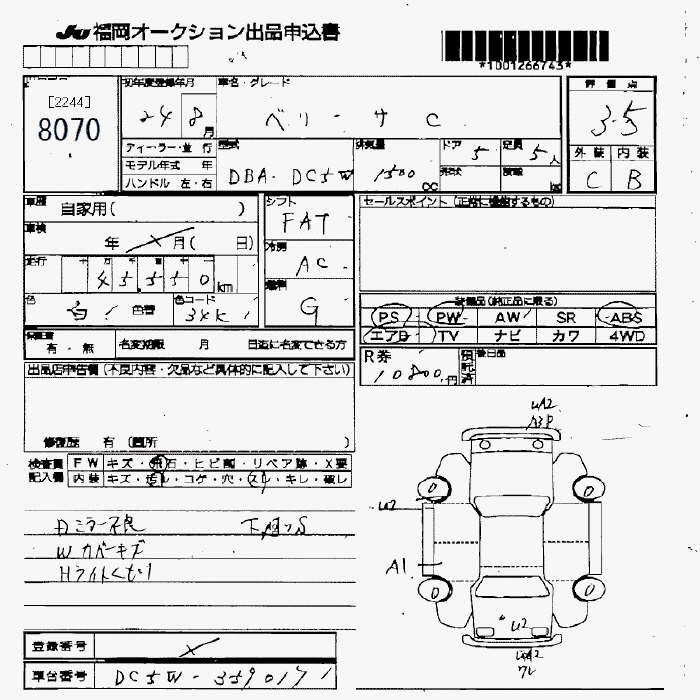 JU 福岡オークション出品申込書
*1001266743*
[2244]
8070
初年度登録年月 車名・グレード 評価点
24 8月 ベリーサ C 3.5
ディーラー・並行 型式 排気量 ドア 5 定員 5人 外装 内装
モデル年式 年
ハンドル 左・右 DBA-DC5W 1500cc C B
車歴 自家用( ) シフト FAT セールスポイント(正常に機能するもの)
車検 年 月( 日) 冷房 AC
走行 十 万 千 百 十 45,550km 燃料 G
色 白 色替 色コード 34K
装備品(純正品に限る)
PS PW AW SR ABS
エアB TV ナビ カワ 4WD
有・無 名変期限 月 日迄に名変できる方
R券 10800円 預託済 後日品
出品店申告欄(不良内容・欠品など具体的に記入して下さい)
修復歴 有(箇所 )
検査員 FW キズ・飛石・ヒビ割・リペア跡・X要
記入欄 内装 キズ・汚レ・コゲ・穴・スレ・キレ・破レ
ミラー不良 下廻りS
Wカバーキズ
Hライトくもり
UA2
A3P
U2
A1
0
0
0
0
U2
UA2
ワレ
登録番号
車台番号 DC5W-3590171